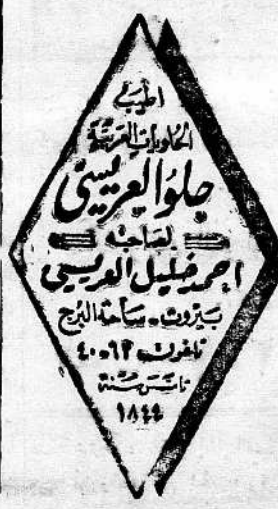 اطيب
الحلويات العربية
حلو العريسي
لصاحبه
احمد خليل العريسي
بيروت - ساحة البرج
تلفون ٦٣-٤٠
تأسس سنة
١٨٤٤